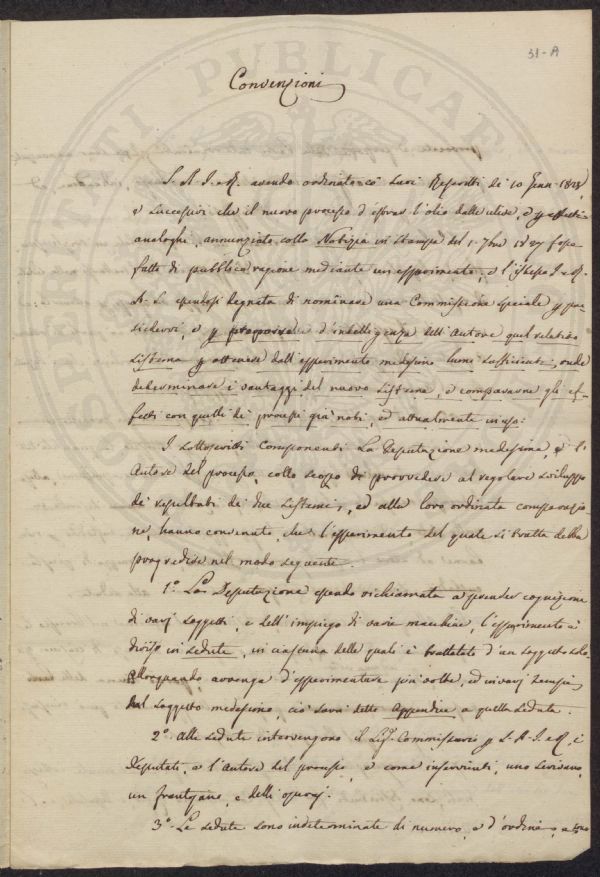 31-A
Convenzioni
S. A. I. e R. avendo ordinato co' suoi Rescritti de' 10 Genn. 1828,
e successivi che il nuovo processo d'estrar l'olio dalle ulive, e
analoghi, annunziato colla Notizia in stampa del 1. 7bre 1827 fosse
fatto di pubblica ragione mediante un esperimento, e l'istessa I. e R.
A. S. essendosi degnata di nominare una Commissione speciale p
siedervi, e p progredire d'intelligenza dell'Autore quel relativo
sistema p ottenere dall'esperimento medesimo lumi sufficienti, onde
determinare i vantaggi del nuovo sistema, e compararne gli ef-
fetti con quelli de' processi già noti, ed attualmente in uso:
I sottoscritti componenti la Deputazione medesima e l'
Autore del processo, collo scopo di provvedere al regolare sviluppo
de' resultati de' due sistemi, ed alla loro ordinata comparazio-
ne, hanno convenuto, che l'esperimento del quale si tratta debba
progredire nel modo seguente.
1.º La Deputazione essendo richiamata a prender cognizione
di varj soggetti, e dell'impiego di varie macchine, l'esperimento è
diviso in sedute, in ciascuna delle quali è trattato d'un soggetto solo.
Allorquando avvenga d'esperimentare più volte, ed in varj
sul soggetto medesimo, ciò sarà detto Appendice a quella seduta.
2.º Alle sedute intervengono il Sig. Commissario p S. A. I. e R., i
Deputati, e l'Autore del processo, e come inservienti, uno scrivano,
un frantojano, e degli operaj.
3.º Le sedute sono indeterminate di numero, e d'ordine, e